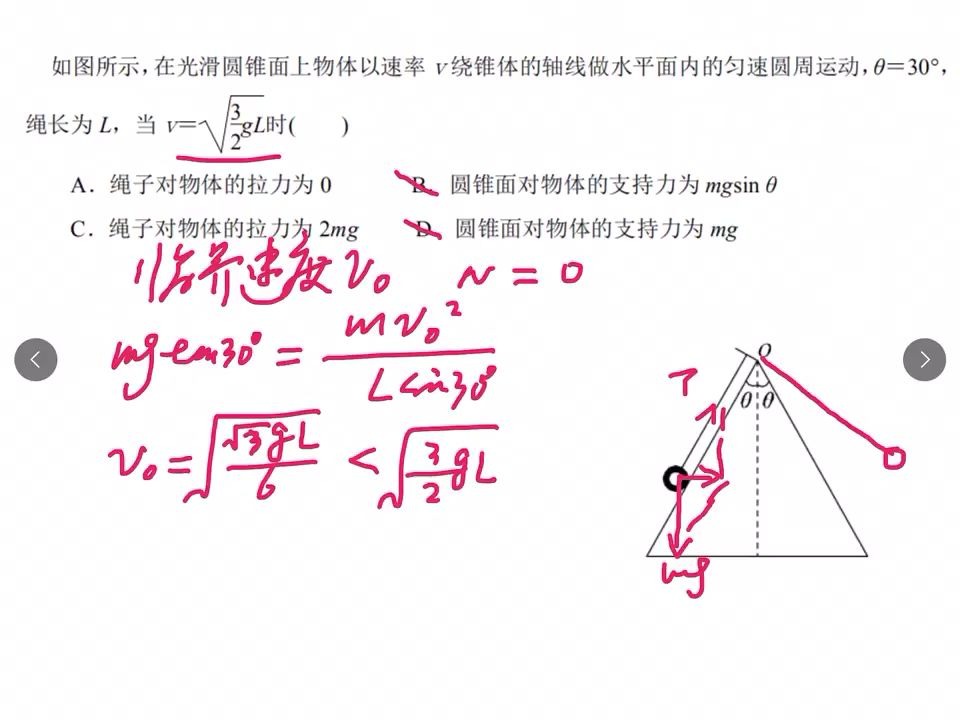 如图所示，在光滑圆锥面上物体以速率 v 绕锥体的轴线做水平面内的匀速圆周运动，θ＝30°，
绳长为 L，当 v＝√(3/2 gL)时(　　)
A．绳子对物体的拉力为 0　　B．圆锥面对物体的支持力为 mgsin θ
C．绳子对物体的拉力为 2mg　　D．圆锥面对物体的支持力为 mg
临界速度 v₀　N = 0
mg tan30° = mv₀² / L sin30°
v₀ = √(√3gL/6) < √(3/2 gL)
O
T
θ θ
mg